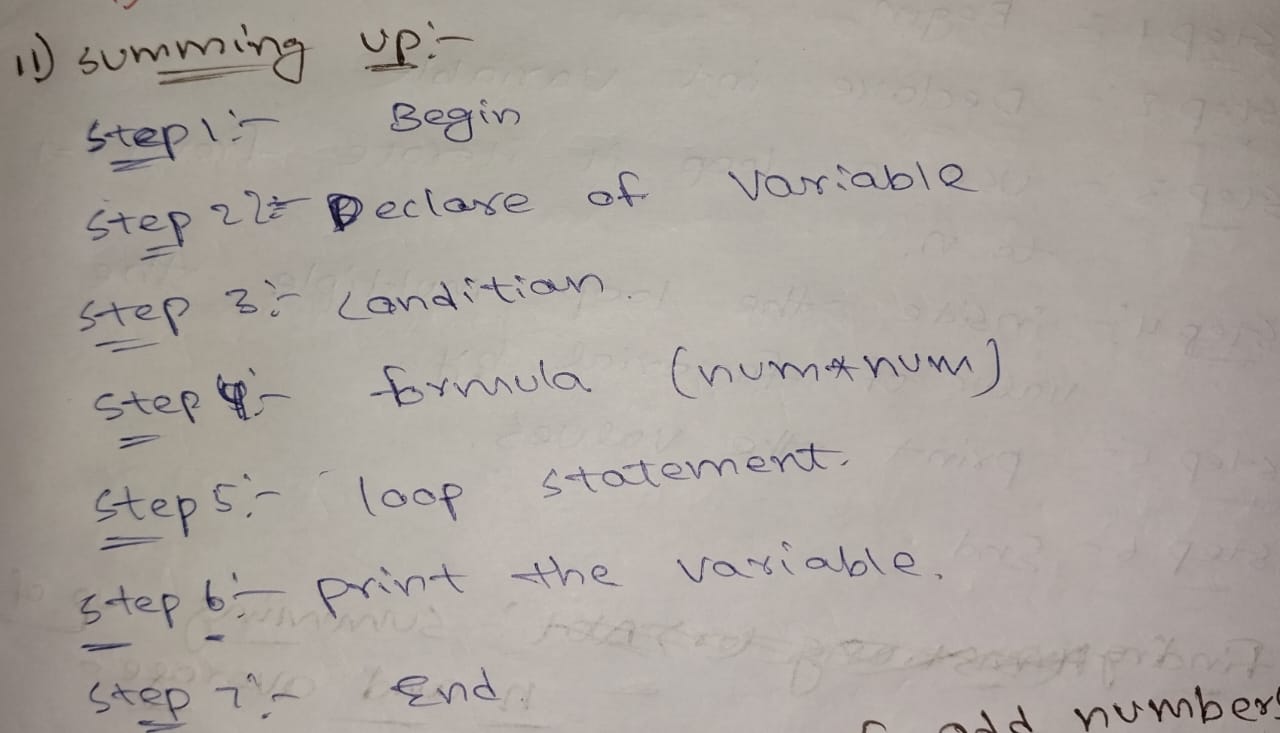 11) summing up:-
Step 1:- Begin
Step 2:- Declare of variable
Step 3:- Condition.
Step 4:- formula (num*num)
Step 5:- loop statement.
Step 6:- print the variable.
Step 7:- End.
odd numbers